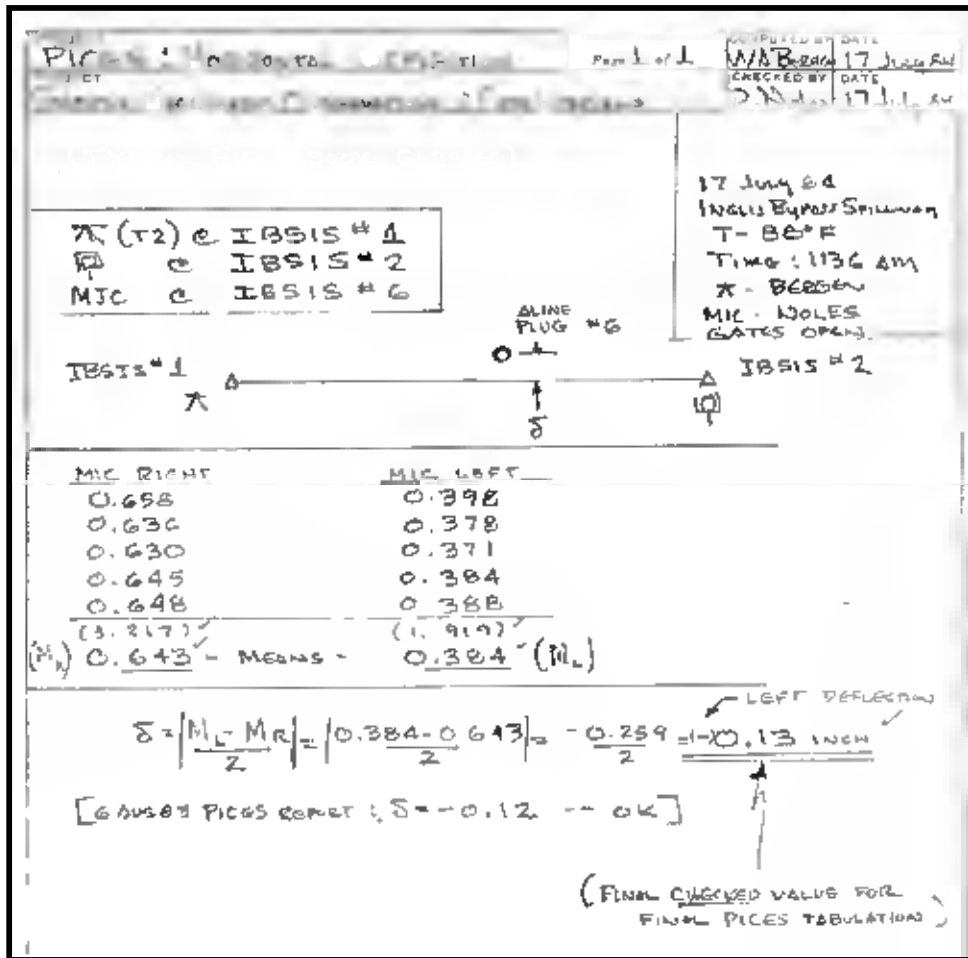 PICES:
Page 1 of 1
COMPUTED BY DATE
17 July
CHECKED BY DATE
17 July
17 July 84
INGLIS BYPASS SPILLWAY
T- 88°F
TIME: 1136 AM
⊼ - BERGEN
MIC - NOLES
GATES OPEN
⊼ (T2) @ IBSIS #1
@ IBSIS #2
MIC @ IBSIS #6
ALINE
PLUG #6
IBSIS #1
IBSIS #2
⊼
δ
MIC RIGHT MIC LEFT
0.658 0.398
0.636 0.378
0.630 0.371
0.645 0.384
0.648 0.388
(3.217) ✓ (1.919) ✓
(MR) 0.643 ✓ - MEANS - 0.384 ✓ (ML)
LEFT DEFLECTION
δ = |ML - MR| / 2 = |0.384 - 0.643| / 2 = -0.259 / 2 = (-)0.13 INCH
[6 AUG 84 PICES REPORT; δ = -0.12 -- OK]
(FINAL CHECKED VALUE FOR
FINAL PICES TABULATION)